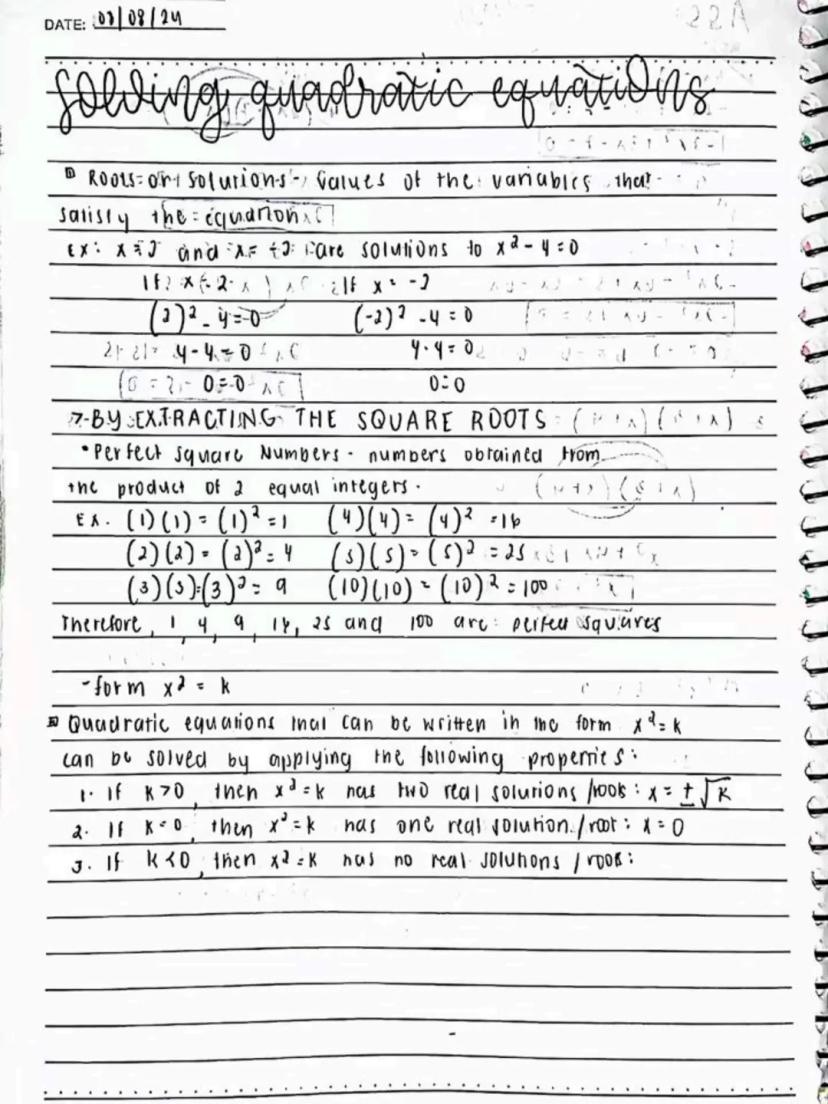 DATE: 07/08/24
Solving quadratic equations
Roots or solutions - values of the variables that
satisfy the equation
Ex: x = 2 and x = -2 are solutions to x² - 4 = 0
If x = 2 If x = -2
(2)² - 4 = 0 (-2)² - 4 = 0
4 - 4 = 0 4 - 4 = 0
0 = 0 0 = 0
7. BY EXTRACTING THE SQUARE ROOTS
• Perfect Square Numbers - numbers obtained from
the product of 2 equal integers.
EX. (1)(1) = (1)² = 1 (4)(4) = (4)² = 16
(2)(2) = (2)² = 4 (5)(5) = (5)² = 25
(3)(3) = (3)² = 9 (10)(10) = (10)² = 100
Therefore, 1, 4, 9, 16, 25 and 100 are perfect squares
- form x² = k
Quadratic equations that can be written in the form x² = k
can be solved by applying the following properties:
1. If k > 0, then x² = k has two real solutions / roots: x = ± √k
2. If k = 0, then x² = k has one real solution / root: x = 0
3. If k < 0, then x² = k has no real solutions / roots: